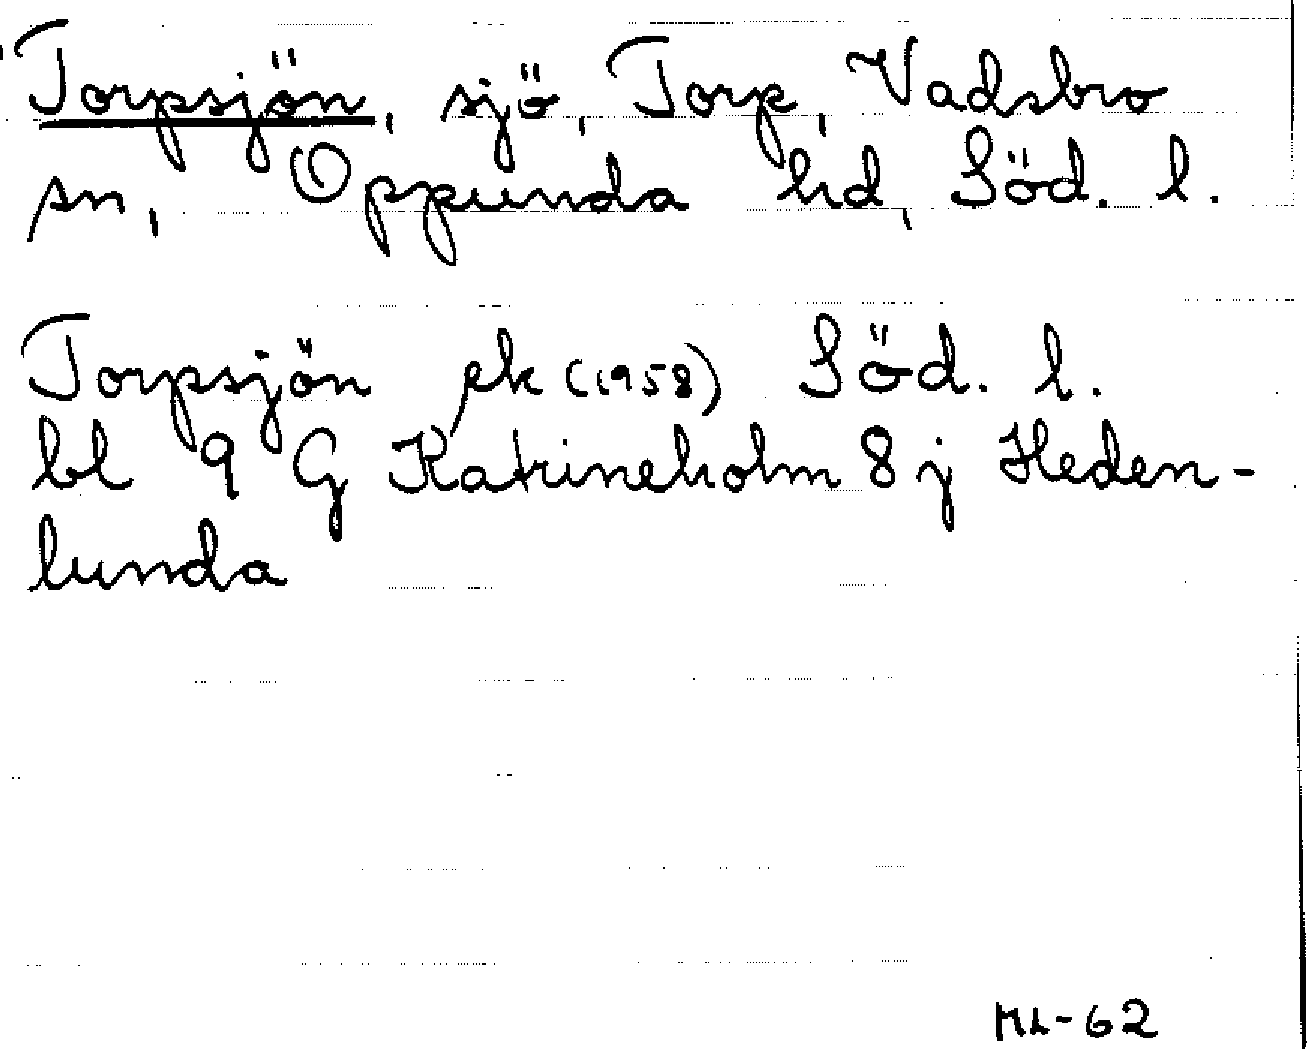 Torpsjön, sjö, Torp, Vadsbro
sn, Oppunda hd, Söd. l.
Torpsjön ek (1958) Söd. l.
bl 9 G Katrineholm 8 j Heden-
lunda
ML-62